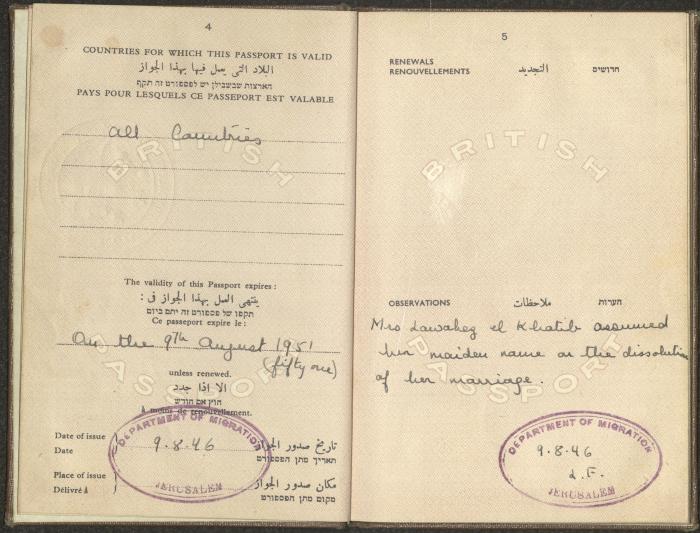 4
COUNTRIES FOR WHICH THIS PASSPORT IS VALID
البلاد التى يعمل فيها بهذا الجواز
הארצות שבשבילן יש לפספורט זה תקף
PAYS POUR LESQUELS CE PASSEPORT EST VALABLE
All Countries
BRITISH
PASSPORT
The validity of this Passport expires :
ينتهى العمل بهذا الجواز فى :
תקפו של פספורט זה יתם ביום
Ce passeport expire le :
On the 9th August 1951
(fifty one)
unless renewed.
الا اذا جدد
הוץ אם חודש
à moins de renouvellement.
DEPARTMENT OF MIGRATION
Date of issue
Date
9.8.46
تاريخ صدور الجواز
תאריך מתן הפספורט
Place of issue
Délivré à
JERUSALEM
مكان صدور الجواز
מקום מתן הפספורט
5
RENEWALS
RENOUVELLEMENTS
التجديد
חדושים
BRITISH
PASSPORT
OBSERVATIONS
ملاحظات
הערות
Mrs Lawahez el Khatib assumed
her maiden name on the dissolution
of her marriage.
DEPARTMENT OF MIGRATION
9.8.46
JERUSALEM